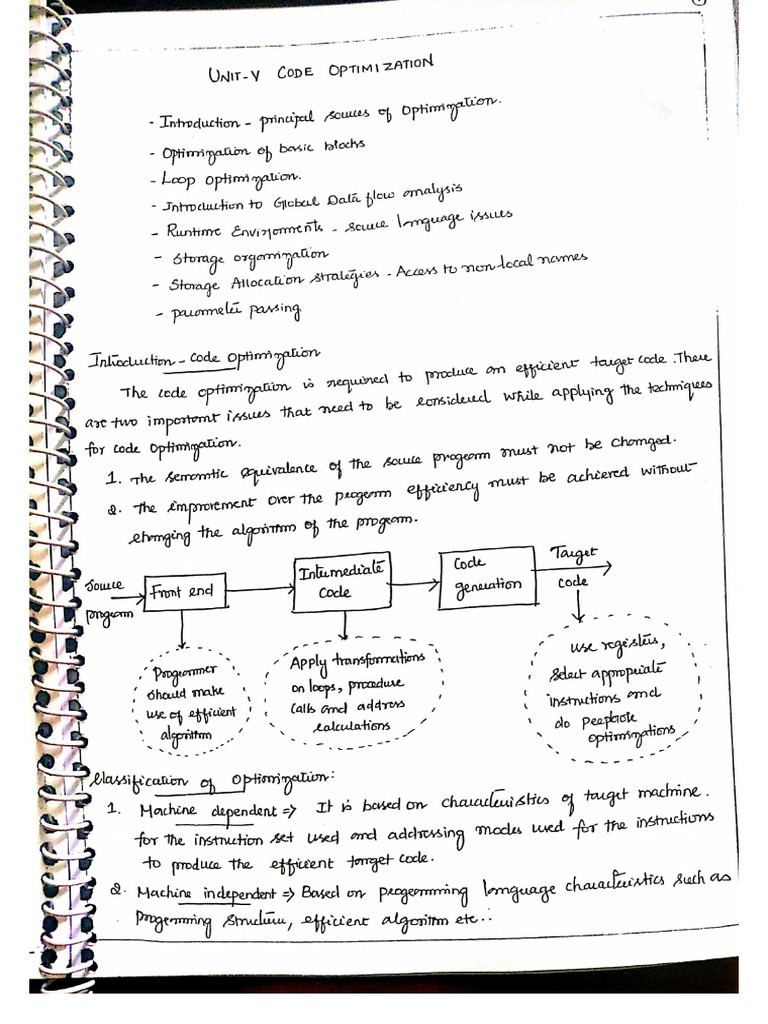 UNIT-V CODE OPTIMIZATION
- Introduction - principal sources of Optimization.
- Optimization of basic blocks
- Loop optimization.
- Introduction to Global Data flow analysis
- Runtime Environments - source language issues
- Storage organization
- Storage Allocation strategies - Access to non-local names
- parameter passing
Introduction - code optimization
The code optimization is required to produce an efficient target code. There
are two important issues that need to be considered while applying the techniques
for code optimization.
1. The semantic equivalence of the source program must not be changed.
2. The improvement over the program efficiency must be achieved without
changing the algorithm of the program.
Source
program
Front end
Intermediate
code
Code
generation
Target
code
Programmer
should make
use of efficient
algorithm
Apply transformations
on loops, procedure
calls and address
calculations
use registers,
select appropriate
instructions and
do peephole
optimizations
Classification of optimization:
1. Machine dependent => It is based on characteristics of target machine.
for the instruction set used and addressing modes used for the instructions
to produce the efficient target code.
2. Machine independent => Based on programming language characteristics such as
Programming structure, efficient algorithm etc..